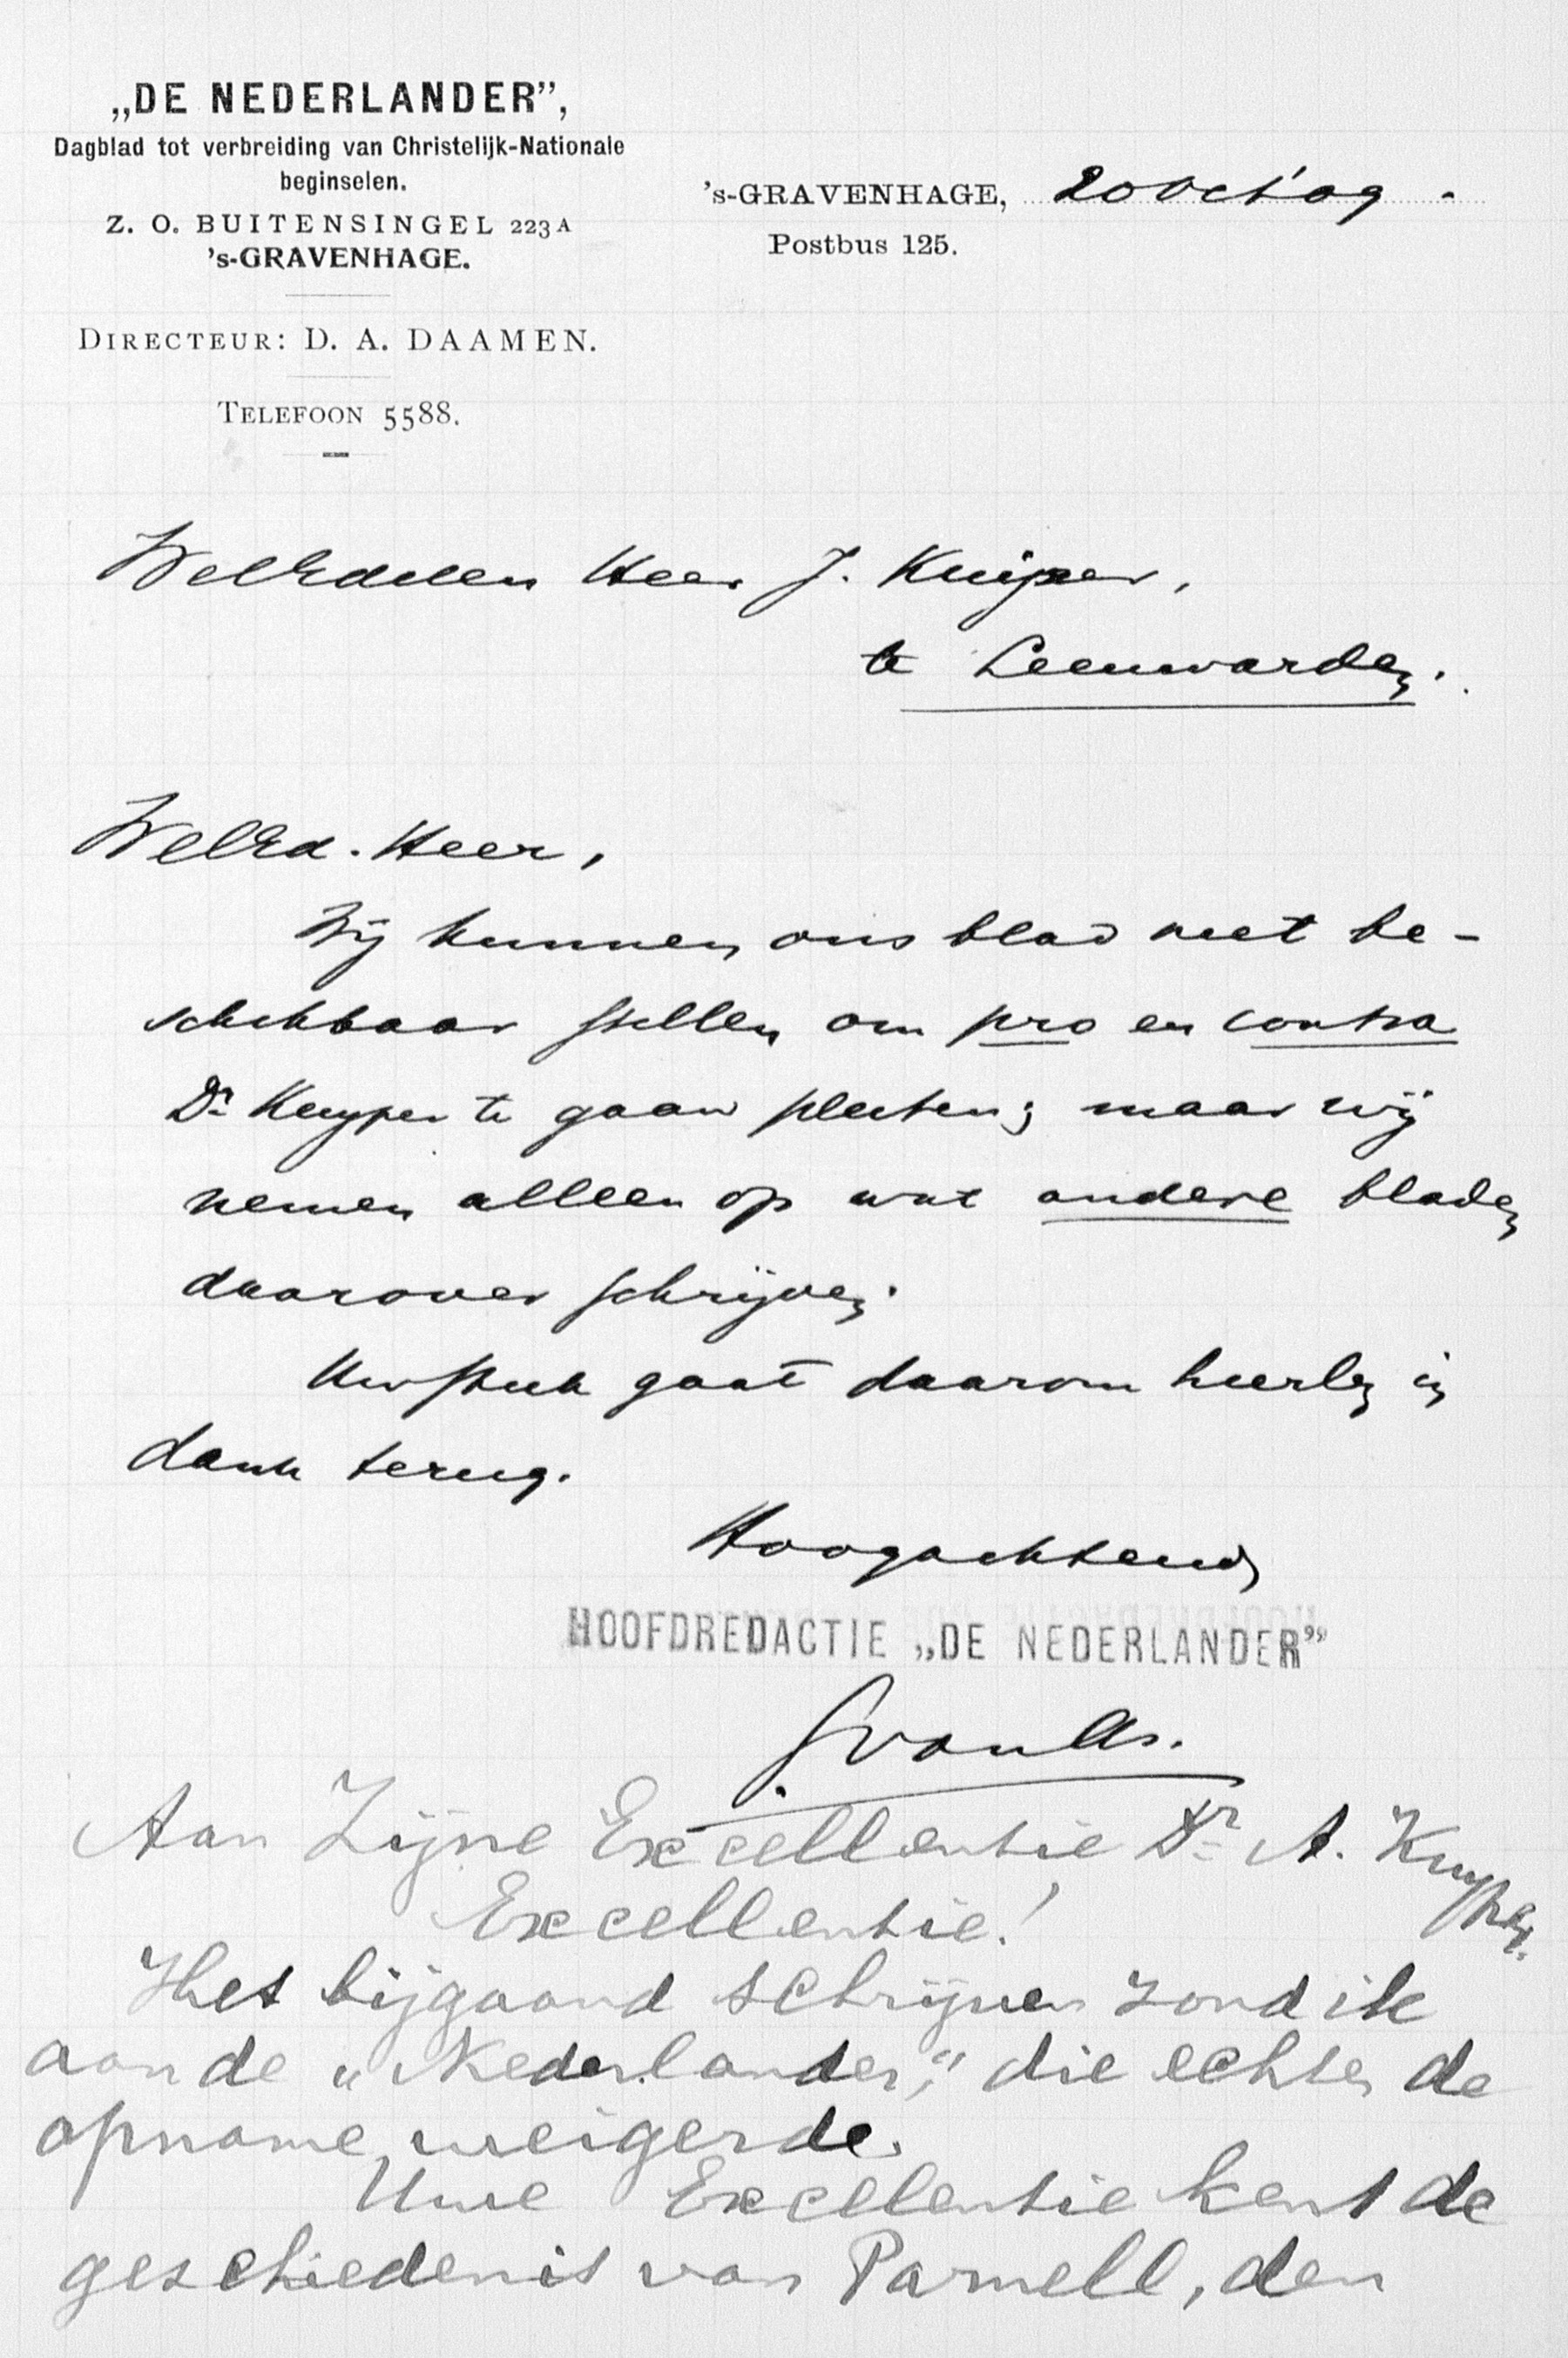 „DE NEDERLANDER”,
Dagblad tot verbreiding van Christelijk-Nationale
beginselen.
Z. O. BUITENSINGEL 223A
's-GRAVENHAGE.
DIRECTEUR: D. A. DAAMEN.
TELEFOON 5588.
's-GRAVENHAGE, 20 Oct '09.
Postbus 125.
WelEdelen Heer J. Kuiper,
te Leeuwarden.
WelEd. Heer,
Wij kunnen ons blad niet be-
schikbaar stellen om pro en contra
Dr Kuyper te gaan pleiten; maar wij
nemen alleen op wat andere bladen
daarover schrijven.
Uw stuk gaat daarom hierbij in
dank terug.
Hoogachtend
HOOFDREDACTIE „DE NEDERLANDER”
Aan Zijne Excellentie Dr A. Kuyper.
Excellentie!
Het bijgaand schrijven zond ik
aan de „Nederlander,” die echter de
opname weigerde.
Uwe Excellentie kent de
geschiedenis van Parnell, den